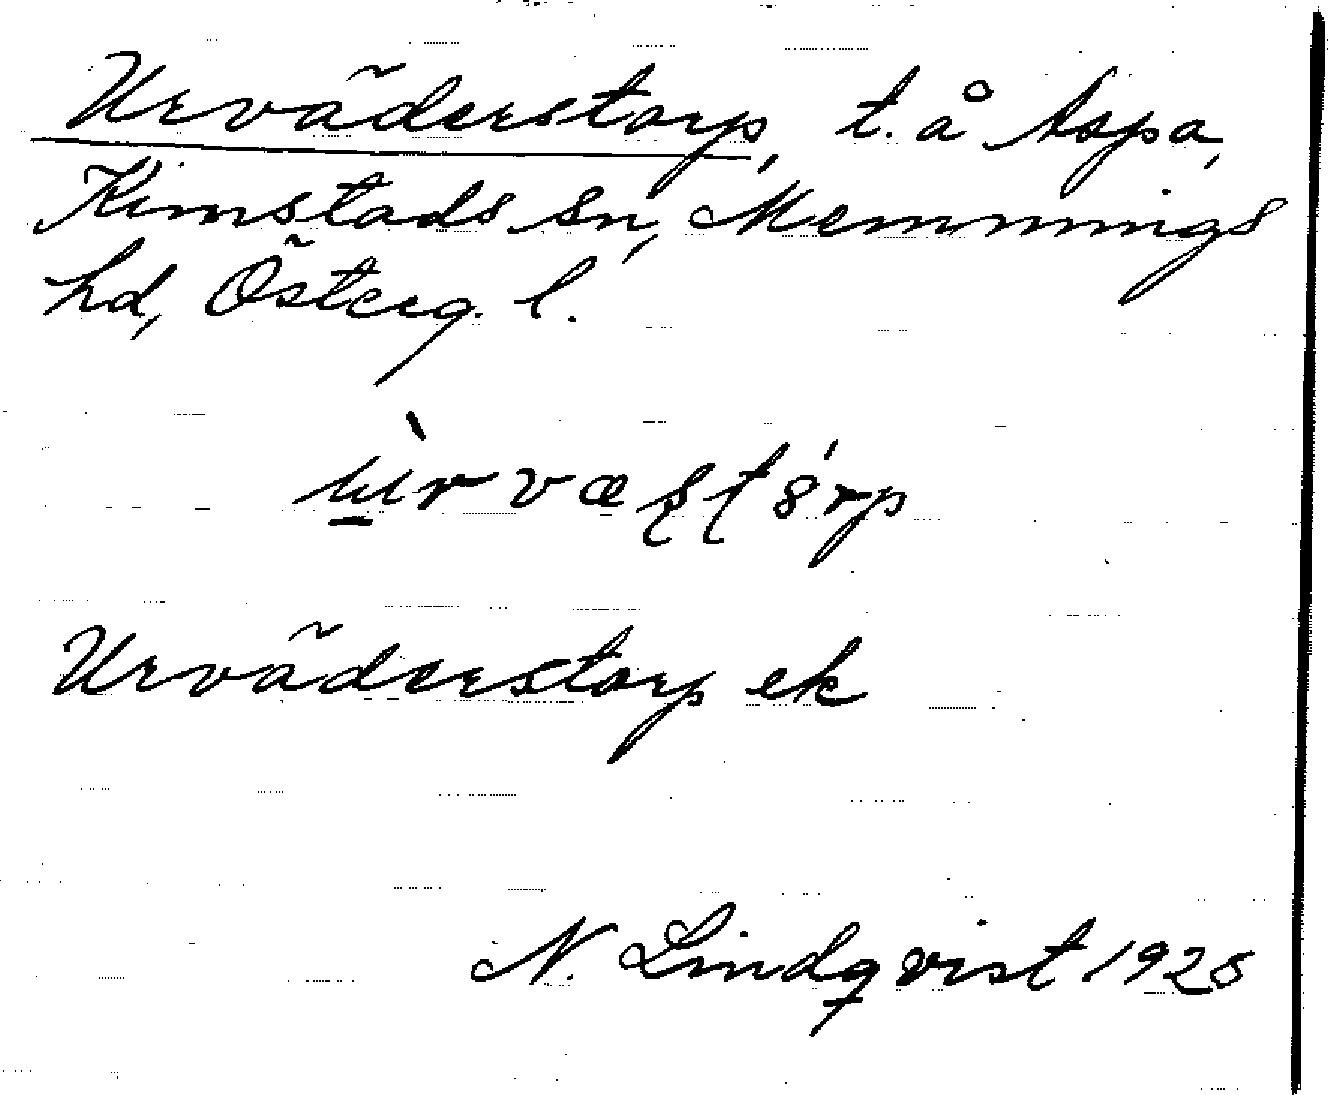 Urväderstorp, t. å Aspa,
Kimstads sn, Memmings
hd, Österg. l.
Urväderstorp ek
N. Lindqvist 1925